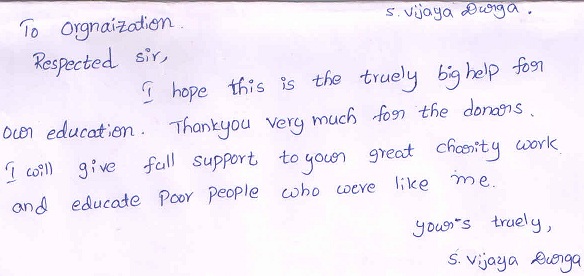 S. Vijaya Durga.
To Orgnaization.
Respected Sir,
I hope this is the truely big help for
our education. Thankyou very much for the donors.
I will give full support to your great charity work
and educate Poor People who were like me.
your's truely,
S. Vijaya Durga